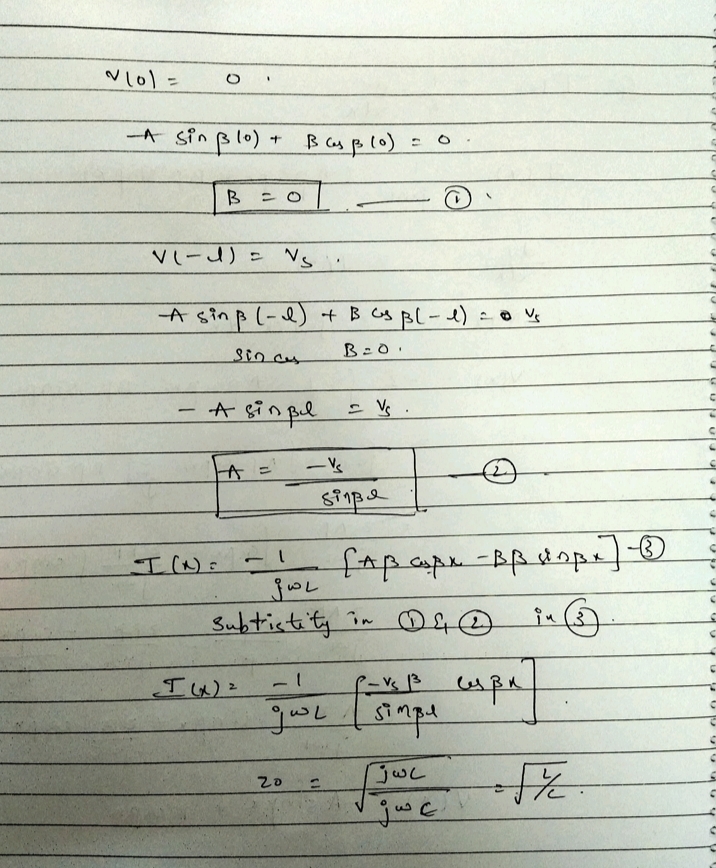 V(0) = 0.
A sin β(0) + B cos β(0) = 0.
B = 0 ——— ①.
V(-l) = Vs.
A sin β(-l) + B cos β(-l) = Vs
sin ces B = 0.
- A sin βl = Vs.
A = -Vs / sin βl ——— ②
I(x) = -1 / jωL [Aβ cos βx - Bβ sin βx] - ③
Subtistity in ① & ② in ③.
I(x) = -1 / jωL [-Vs β / sin βl cos βx]
Z0 = √(jωL / jωC) = √(L/C).